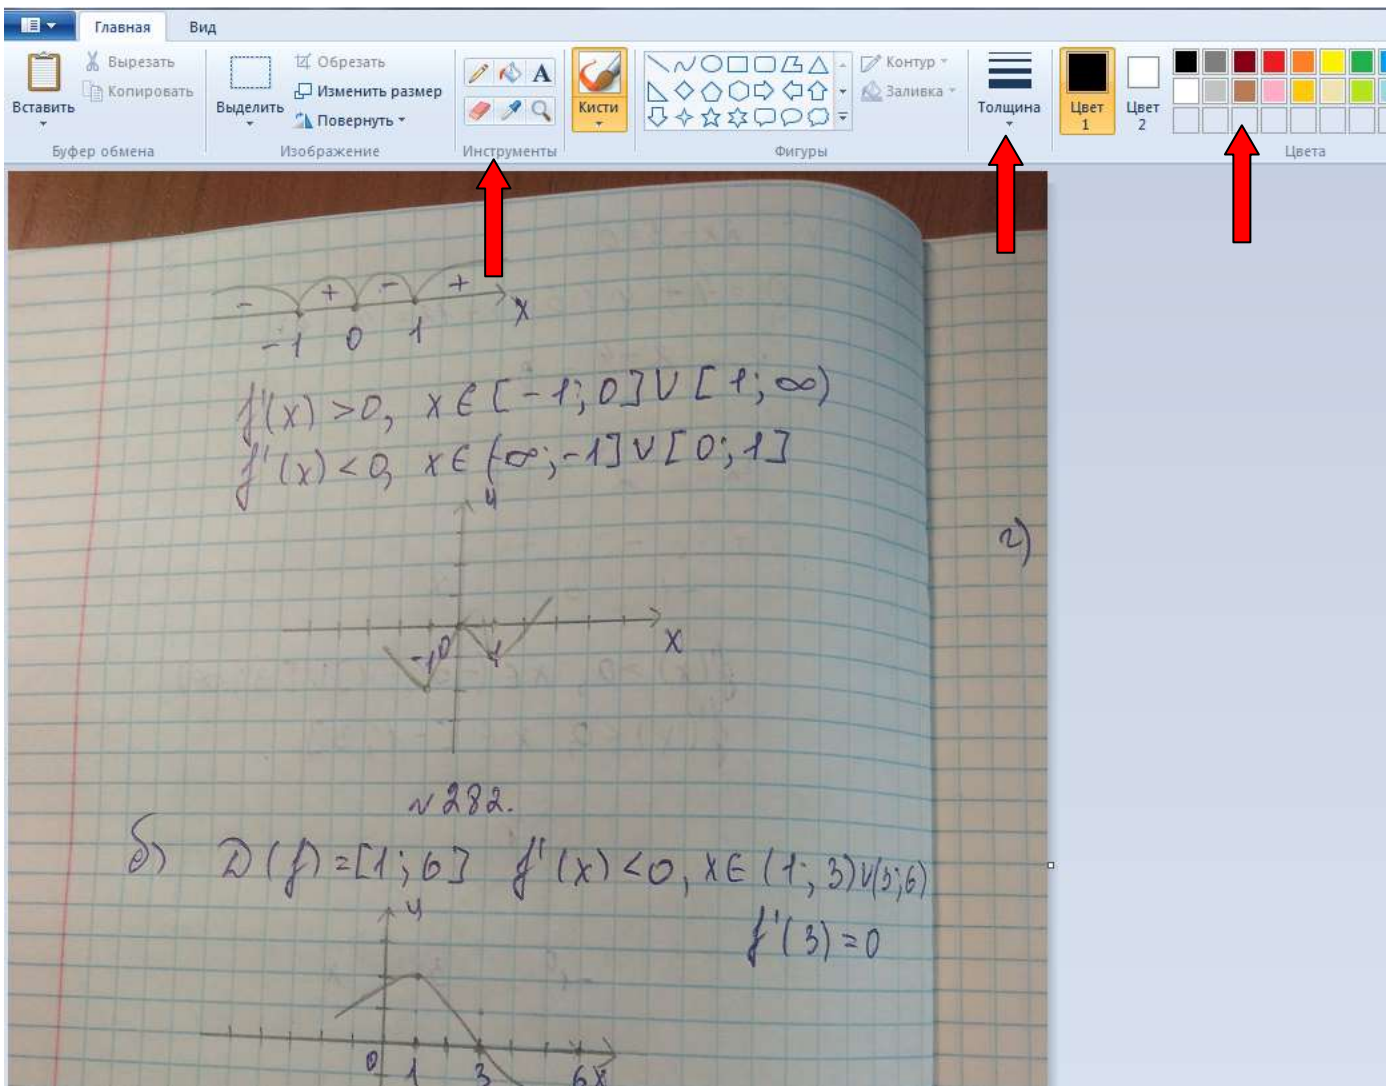 Главная Вид
Вставить
Вырезать
Копировать
Буфер обмена
Выделить
Обрезать
Изменить размер
Повернуть
Изображение
A
Инструменты
Кисти
Контур
Заливка
Фигуры
Толщина
Цвет 1
Цвет 2
Цвета
- + - + x
-1 0 1
f'(x) > 0, x ∈ [-1; 0] ∪ [1; ∞)
f'(x) < 0, x ∈ (-∞; -1] ∪ [0; 1]
y
г)
-1 0 1 x
№ 282.
б) D(f) = [1; 6] f'(x) < 0, x ∈ (1; 3) ∪ (3; 6)
y
f'(3) = 0
0 1 3 6 x